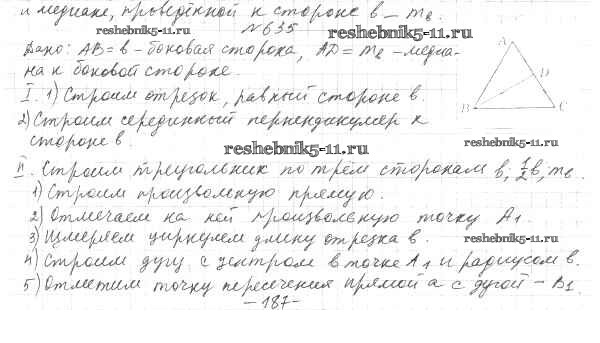 и медиане, проведённой к стороне в – mв.
№635
reshebnik5-11.ru
Дано: АВ = в – боковая сторона, АD = mв – медиа-
на к боковой стороне.
I. 1) Строим отрезок, равный стороне в.
2) Строим серединный перпендикуляр к
стороне в.
reshebnik5-11.ru
A
D
B
C
II. Строим треугольник по трём сторонам в; ½в; mв.
1) Строим произвольную прямую.
2) Отмечаем на ней произвольную точку А1.
3) Измеряем циркулем длину отрезка в.
reshebnik5-11.ru
4) Строим дугу с центром в точке А1 и радиусом в.
5) Отметим точку пересечения прямой а с дугой – В1.
– 187 –